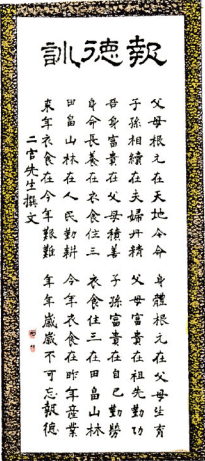 報德訓
父母根元在天地令命 身體根元在父母生育
子孫相續在夫婦丹精 父母富貴在祖先勤功
吾身富貴在父母積善 子孫富貴在自己勤勞
身命長養在衣食住三 衣食住三在田畠山林
田畠山林在人民勤耕 今年衣食在昨年産業
來年衣食在今年艱難 年年歳歳不可忘報德
二宮先生撰文